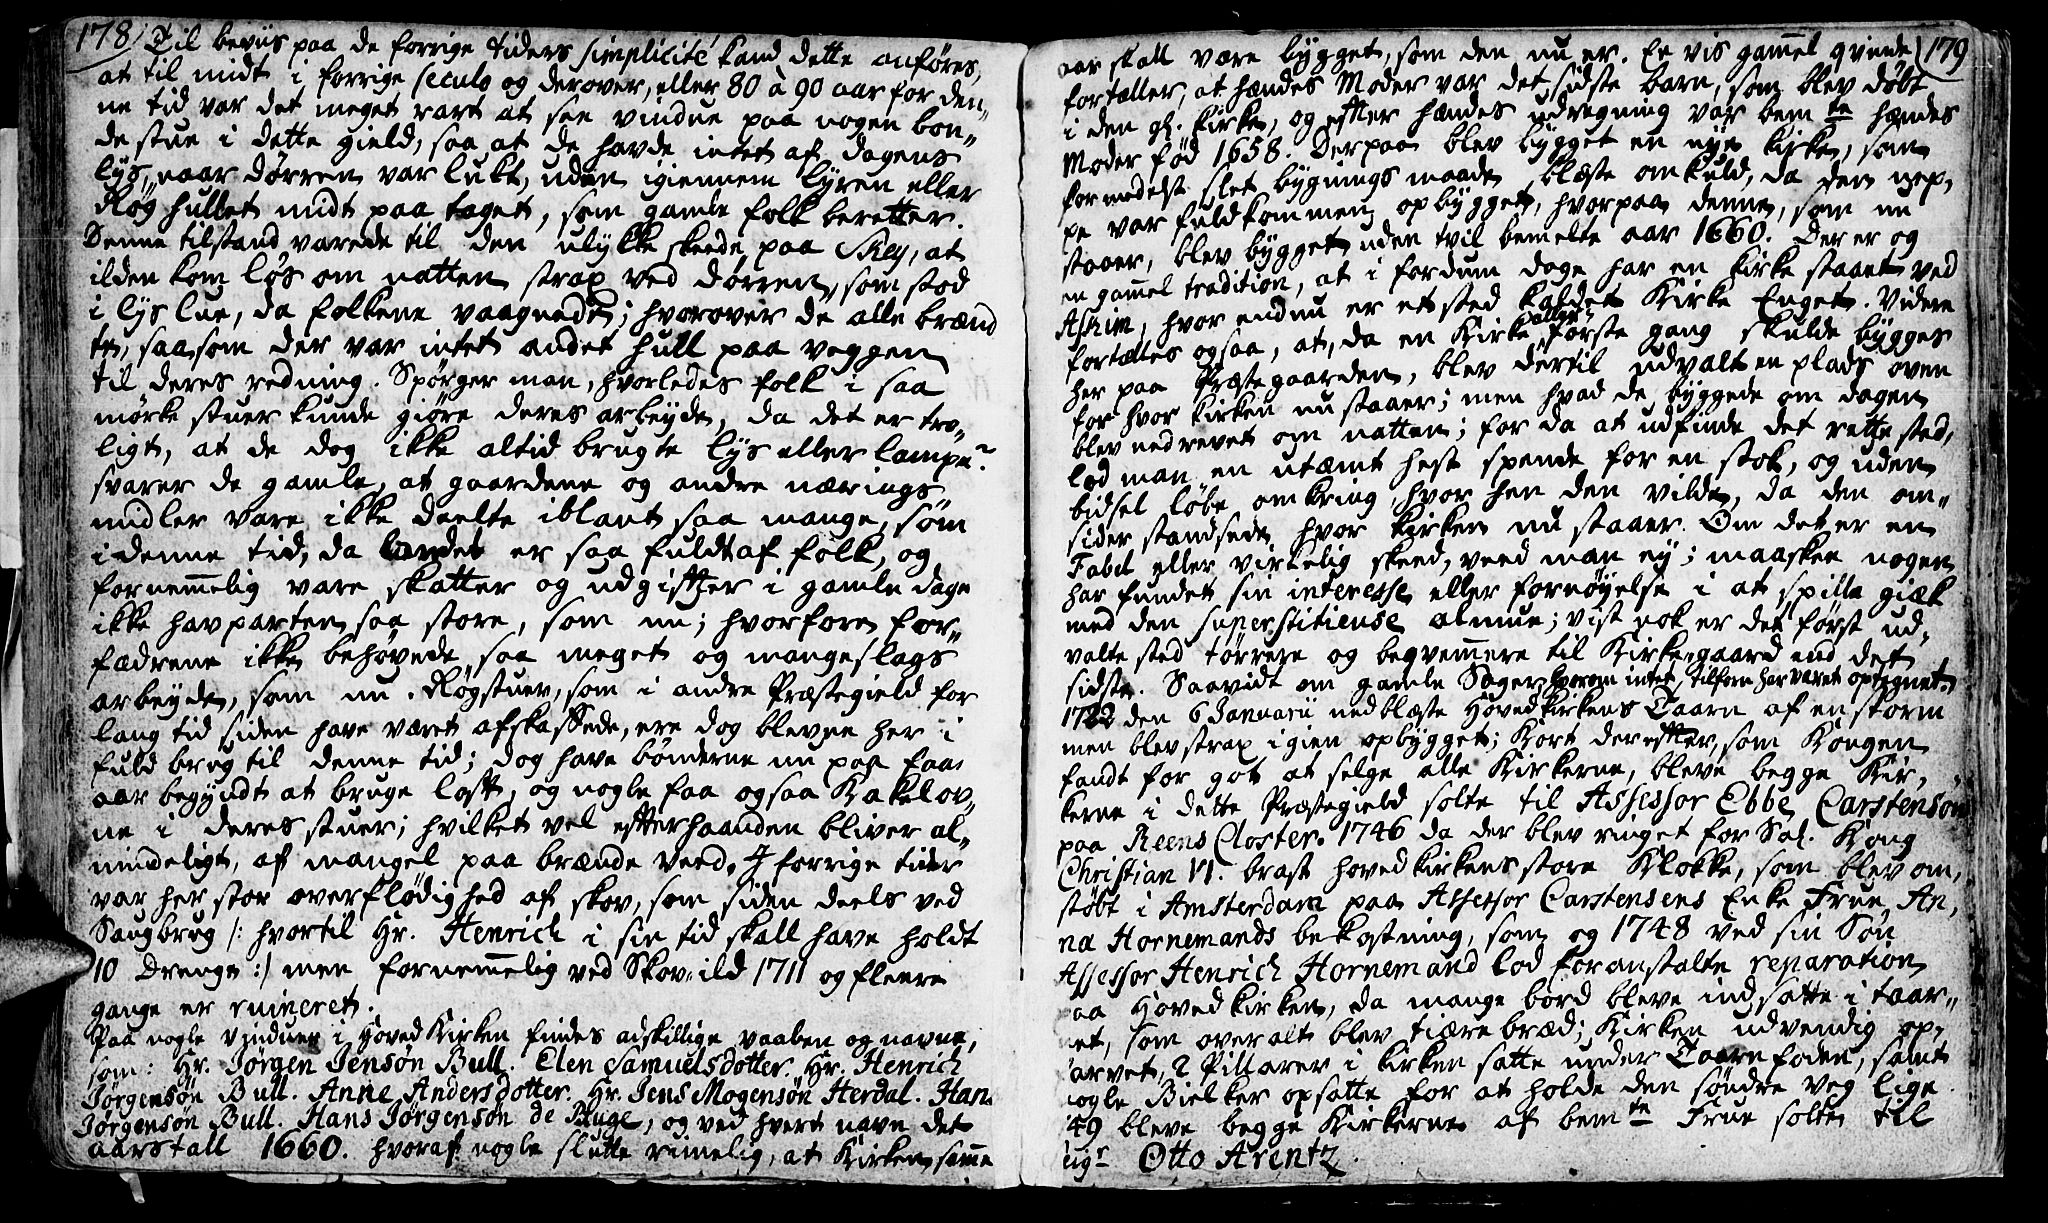 178
Til beviis paa de forrige tiders simplicité kand dette anføres,
at til midt i forrige seculo og derover, eller 80 à 90 aar for den,,
ne tid var det meget rart at see vindue paa nogen bon,,
de stue i dette gield, saa at de havde intet af dagens
lys, naar dørren var lukt, uden igiennem lyren eller
Røg hullet midt paa taget, som gamle folk beretter.
Denne tilstand varede til den ulykke skeede paa Skey, at
ilden kom løs om natten strax ved dørren, som stod
i lys lue, da folkene vaagnede; hvorover de alle brænd
te, saasom der var intet andet hull paa veggen
til deres redning. Spørger man, hvorledes folk i saa
mørke stuer kunde giøre deres arbeyde, da det er tro,,
ligt, at de dog ikke altid brugte lys eller lampe?
svarer de gamle, at gaardene og andre nærings
midler vare ikke deelte iblant saa mange, som
i denne tid, da landet er saa fuldt af folk, og
fornemmelig vare skatter og udgifter i gamle dage
ikke havparten saa store, som nu; hvorfore for,,
fædrene ikke behøvede saa meget og mange slags
arbeyde, som nu. Røgstuer, som i andre Præstegield for
lang tid siden have været afskaffede, ere dog blevne her i
fuld brug til denne tid; dog have bønderne nu paa faa
aar begyndt at bruge loft, og nogle faa ogsaa Kakelov,,
ne i deres stuer; hvilket vel efterhaanden bliver al,,
mindeligt, af mangel paa brænde veed. I forrige tider
var her stor overflødighed af skov, som siden deels ved
Saugbrug /: hvortil Hr. Henrich i sin tid skall have holdt
10 Drenge :/ men fornemmelig ved Skov-ild 1711 og fleere
gange er ruineret.
Paa nogle vinduer i Hoved Kirken findes adskillige vaaben og navne,
som: Hr. Jørgen Jensøn Bull. Elen Samuelsdotter. Hr. Henrich
Jørgensøn Bull. Anne Andersdotter. Hr. Jens Mogensøn Herdal. Han
Jørgensøn Bull. Hans Jørgensøn de , og ved hvert navn det
aarstall 1660. hvoraf nogle slutte rimelig, at Kirken samme
179
aar skall være bygget, som den nu er. En vis gammel qvinde
fortæller, at hændes Moder var det sidste barn, som blev døbt
i den gl. kirke, og efter hændes udregning var bemte hændes
Moder fød 1658. Derpaa blev bygget en nye kirke, som
formedelst slet bygnings maade blæste omkuld, da den nep,
pe var fuldkommen opbygget, hvorpaa denne, som nu
staaer, blev bygget uden tvil bemelte aar 1660. Der er og
en gammel tradition, at i fordum dage har en kirke staaet ved
Askim, hvor endnu er et sted kaldet Kirke Enget. Videre
fortælles ogsaa, at, da en Kirke aller første gang skulde bygges
her paa Præstegaarden, blev dertil udvalt en plads oven
for hvor kirken nu staaer; men hvad de byggede om dagen
blev nedrevet om natten; for da at udfinde det rette sted,
lod man en utæmt hest spende for en stok, og uden
bidsel løbe omkring, hvor hen den vilde, da den om,,
sider standsede hvor kirken nu staaer. Om det er en
Fabel eller virkelig skeed, veed man ey; maaskee nogen
har fundet sin interesse eller fornøyelse i at spille giæk
med den superstitieuse almue; vist nok er det først ud,
valte sted tørrere og beqvemmere til Kirke-gaard end det
sidste. Saavidt om gamle Sager, hvorom intet tilforn har været optegnet.
1722 den 6 Januarii nedblæste Hovedkirkens Taarn af en storm
men blev strax igien opbygget; Kort derefter, som Kongen
fandt for got at selge alle Kirkerne, bleve begge Kir,
kerne i dette Præstegield solte til Assessor Ebbe Carstensøn
paa Reens Closter. 1746 da der blev ringet for Sal. Kong
Christian VI. brast hovedkirkens store Klokke, som blev om,
støbt i Amsterdam paa Assessor Carstensens Enke Frue, An,
na Hornemands bekostning, som og 1748 ved sin Søn
Assessor Henrich Hornemand lod foranstalte reparation
aa Hovedkirken, da mange bord bleve indsatte i taar,,
et, som overalt blev tiærebræd; Kirken udvendig op,
arvet, 2 Pillarer i kirken satte under Taarn foden, samt
ogle Bielker opsatte for at holde den søndre veg lige.
49 bleve begge Kirkerne af bemte Frue solte til
igr Otto Arentz.